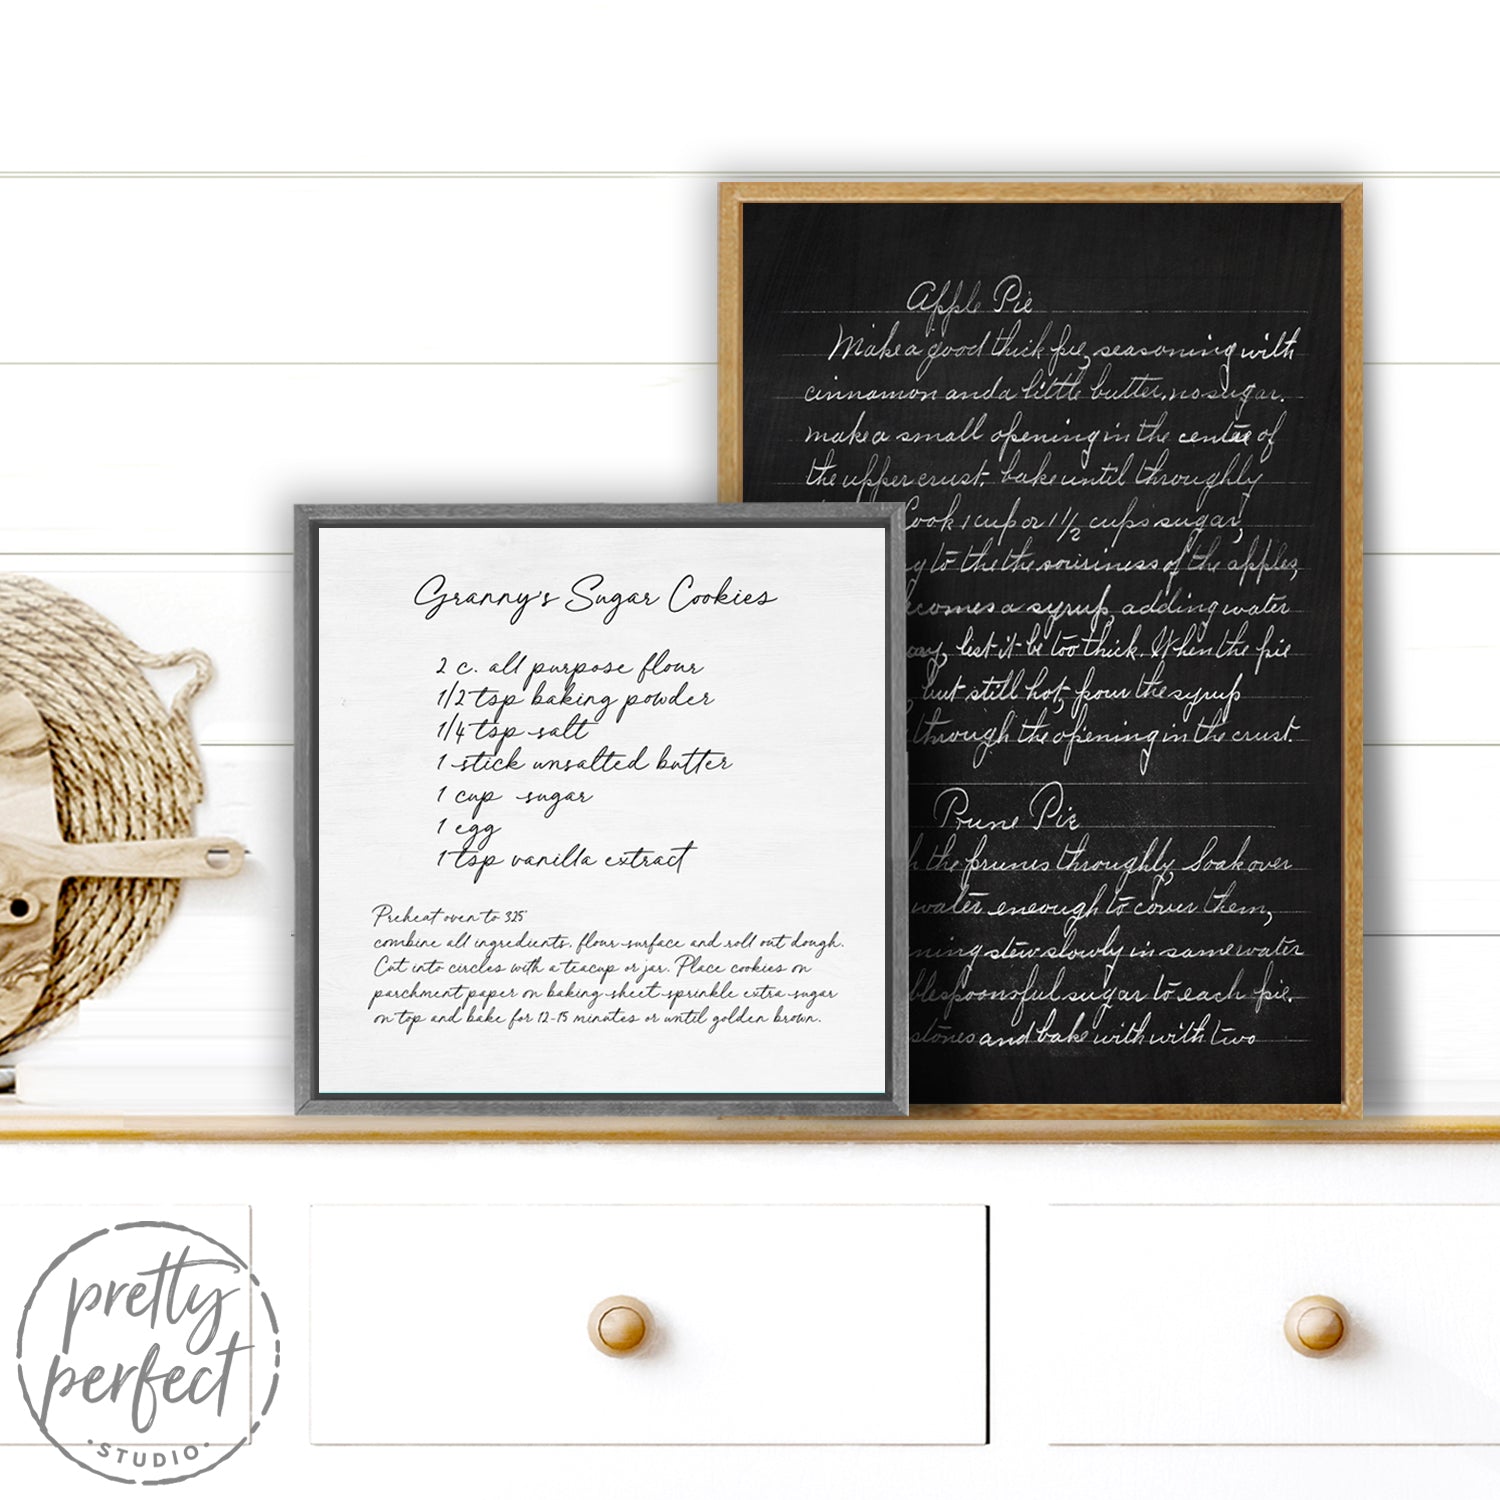 Granny's Sugar Cookies
2 c. all purpose flour
1/2 tsp baking powder
1/4 tsp salt
1 stick unsalted butter
1 cup sugar
1 egg
1 tsp vanilla extract
Preheat oven to 325°
combine all ingredients. flour surface and roll out dough.
Cut into circles with a teacup or jar. Place cookies on
parchment paper on baking sheet sprinkle extra sugar
on top and bake for 12-15 minutes or until golden brown.
Apple Pie
Make a good thick pie, seasoning with
cinnamon and a little butter, no sugar.
make a small opening in the centre of
the upper crust, bake until throughly
Cook 1 cup or 1 1/2 cups sugar,
to the the souriness of the apples,
becomes a syrup, adding water
lest it be too thick. When the pie
but still hot, pour the syrup
through the opening in the crust.
Prune Pie
the prunes throughly, Soak over
water eneough to cover them,
stew slowly in same water
sugar to each pie.
stones and bake with with two
pretty
perfect
·STUDIO·